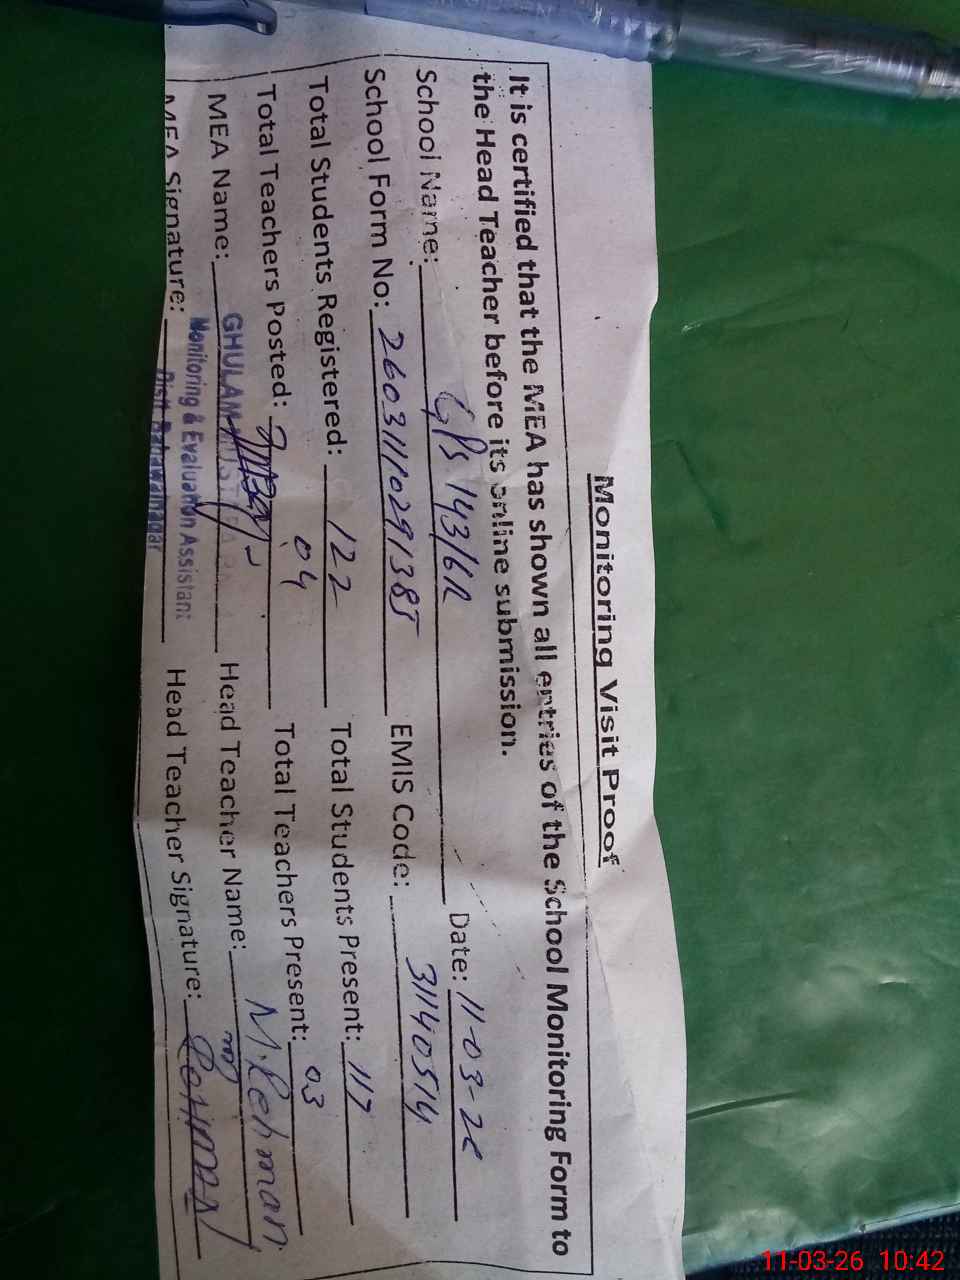 Monitoring Visit Proof
It is certified that the MEA has shown all entries of the School Monitoring Form to
the Head Teacher before its online submission.
School Name: GPS 143/6R Date: 11-03-26
School Form No: 26031110291385 EMIS Code: 31140514
Total Students Registered: 122 Total Students Present: 117
Total Teachers Posted: 04 Total Teachers Present: 03
MEA Name: GHULAM Head Teacher Name: M. Rehman
Monitoring & Evaluation Assistant
MEA Signature: Head Teacher Signature:
Distt. Bahawalnagar
11-03-26 10:42